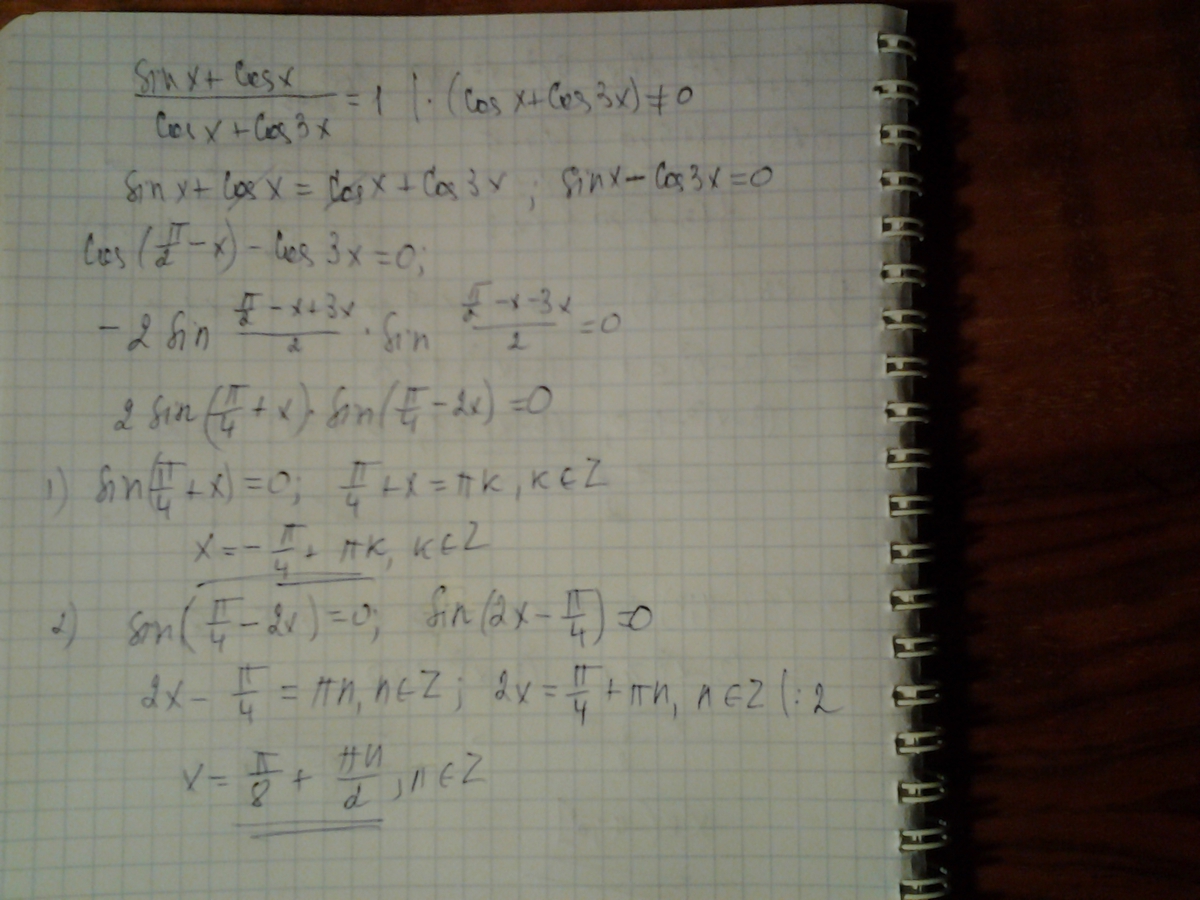 (sin x + cos x)/(cos x + cos 3x) = 1 | · (cos x + cos 3x) ≠ 0
sin x + cos x = cos x + cos 3x ; sin x − cos 3x = 0
cos (π/2 − x) − cos 3x = 0;
− 2 sin (π/2 − x + 3x)/2 · sin (π/2 − x − 3x)/2 = 0
2 sin (π/4 + x) · sin (π/4 − 2x) = 0
1) sin (π/4 + x) = 0; π/4 + x = πk, k ∈ Z
x = − π/4 + πk, k ∈ Z
2) sin (π/4 − 2x) = 0; sin (2x − π/4) = 0
2x − π/4 = πn, n ∈ Z ; 2x = π/4 + πn, n ∈ Z | : 2
x = π/8 + πn/2, n ∈ Z